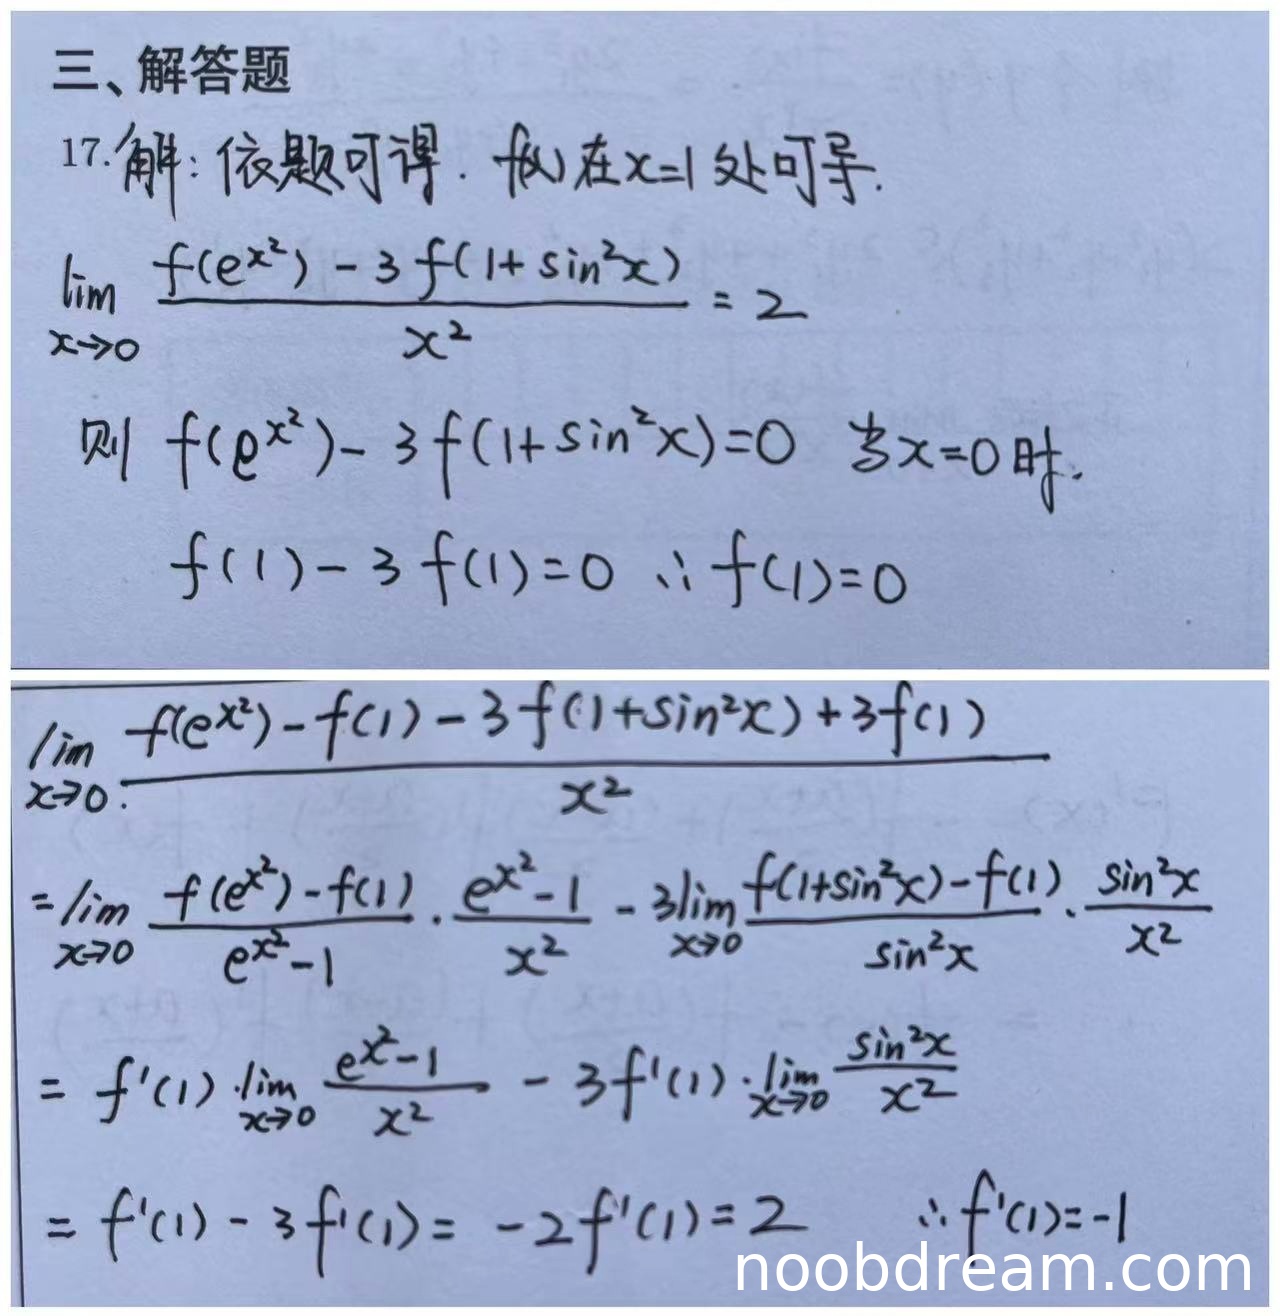 三、解答题
17.解:依题可得.f(x)在x=1处可导.
lim x→0 (f(e^x²) - 3f(1+sin²x))/x² = 2
则 f(e^x²) - 3f(1+sin²x)=0 当x=0时.
f(1) - 3f(1)=0 ∴f(1)=0
lim x→0. (f(e^x²) - f(1) - 3f(1+sin²x) + 3f(1))/x²
= lim x→0 (f(e^x²) - f(1))/(e^x² - 1) · (e^x² - 1)/x² - 3lim x→0 (f(1+sin²x) - f(1))/sin²x · sin²x/x²
= f'(1)·lim x→0 (e^x² - 1)/x² - 3f'(1)·lim x→0 sin²x/x²
= f'(1) - 3f'(1) = -2f'(1) = 2 ∴f'(1)=-1
noobdream.com